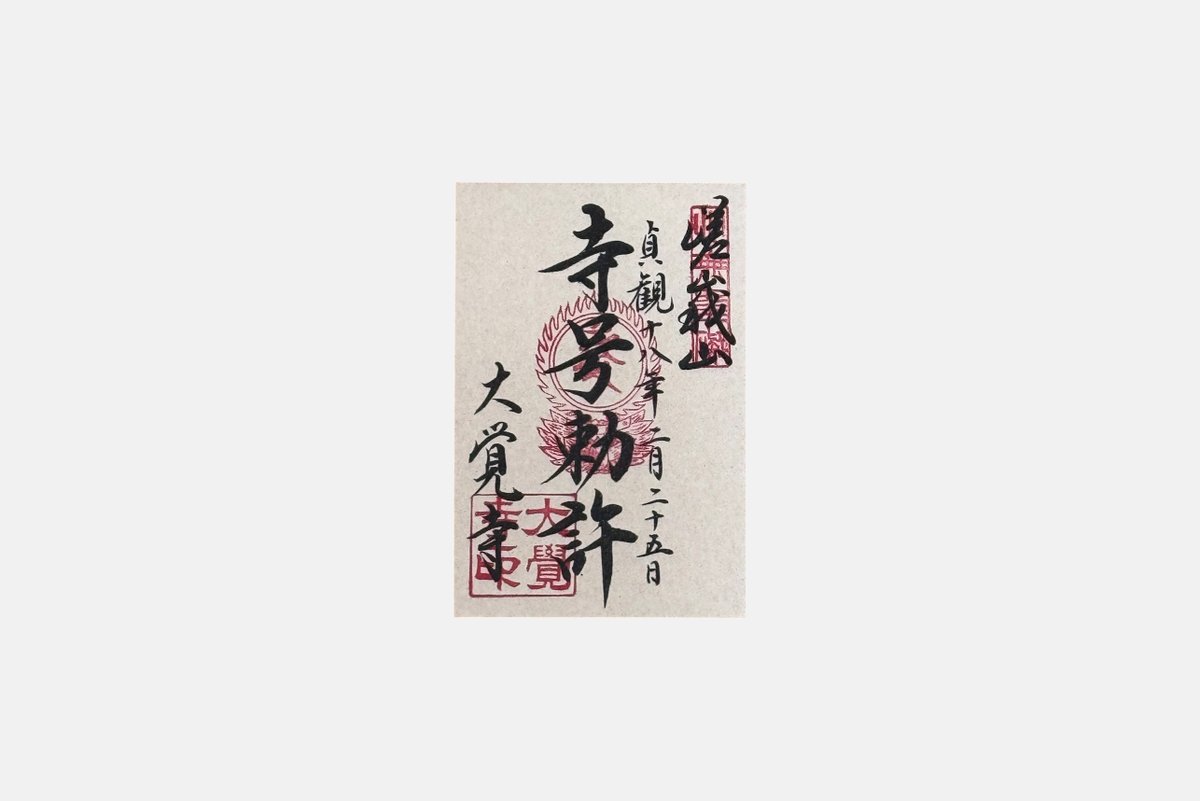 嵯峨山
貞観十八年二月二十五日
寺号勅許
大覚寺
大覺
寺印